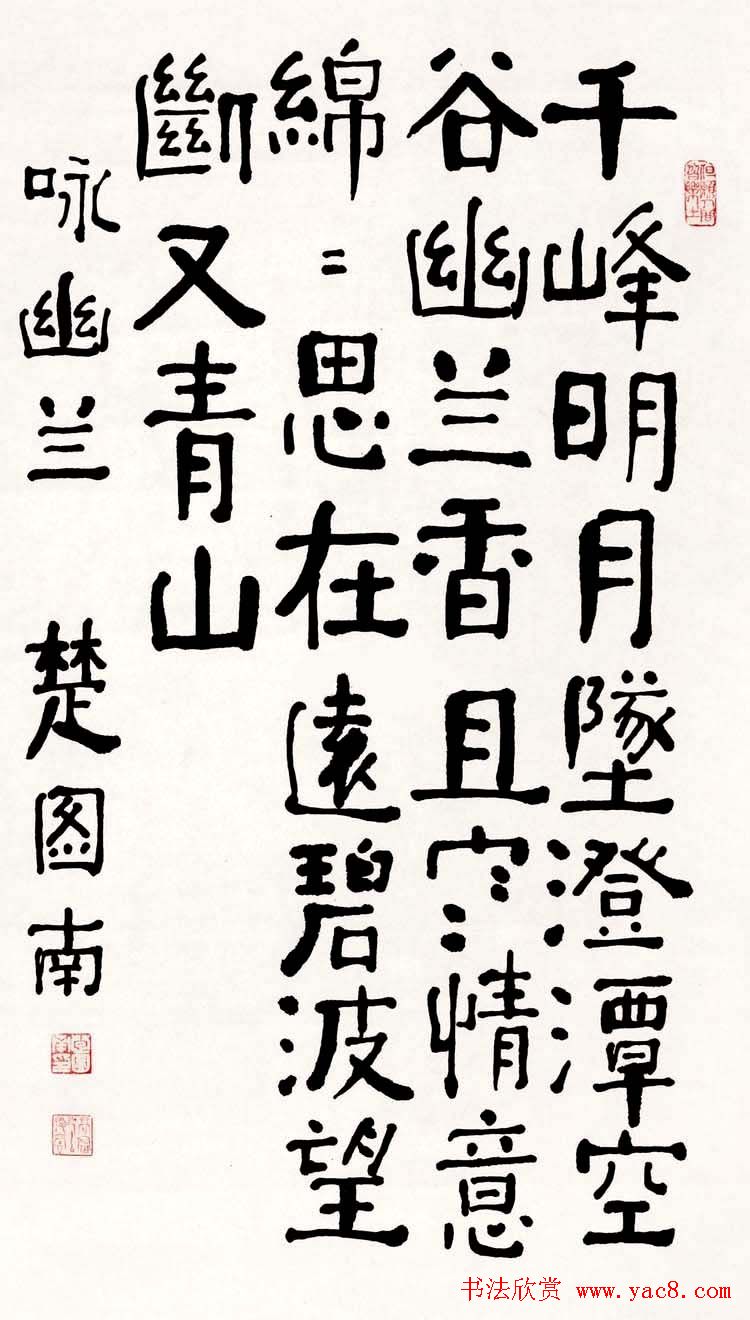 千峰明月墜澄潭空
谷幽兰香且寒情意
綿〻思在遠碧波望
斷又青山
咏幽兰 楚图南
书法欣赏 www.yac8.com